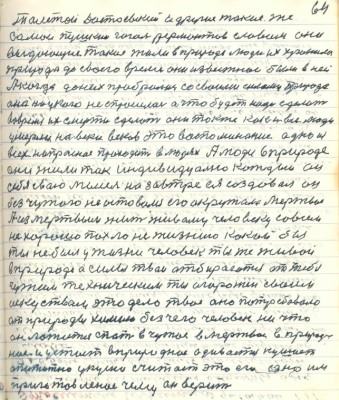 64
Толстой Достоевский и другие такие же
самое Пушкин гоголь лермонтов словом они
выдающие такие жили в природе люди их хранила
природа до своего время они известное были в ней
А когда до них пробрались со своими силами природа
она ни у кого не спросилась а что будет надо сделать
им их смерти сделать они также как и все люди
умерли на веки веков это воспоминание одно и
всех напрасное приходит в людях А люди в природе
они жили так индивидуально каждый он
себя своё имел на завтра себя создавал он
без чужого не оставался его окружало мертвое
А из мертвым жить живому человеку совсем
не хорошо пахло не жизнию какой бы
ты не был у жизни человек ты же живой
в природе а силы твои отбираются от тебя
чужим техническим ты огорожен своим
искусством это дело твоё оно потребовало
от природы без чего человек ни что
он ложится спать в чужое в мертвое в природу
не и устает в природное одевается кушает
считает это его одно им
приготовленое чему он верит